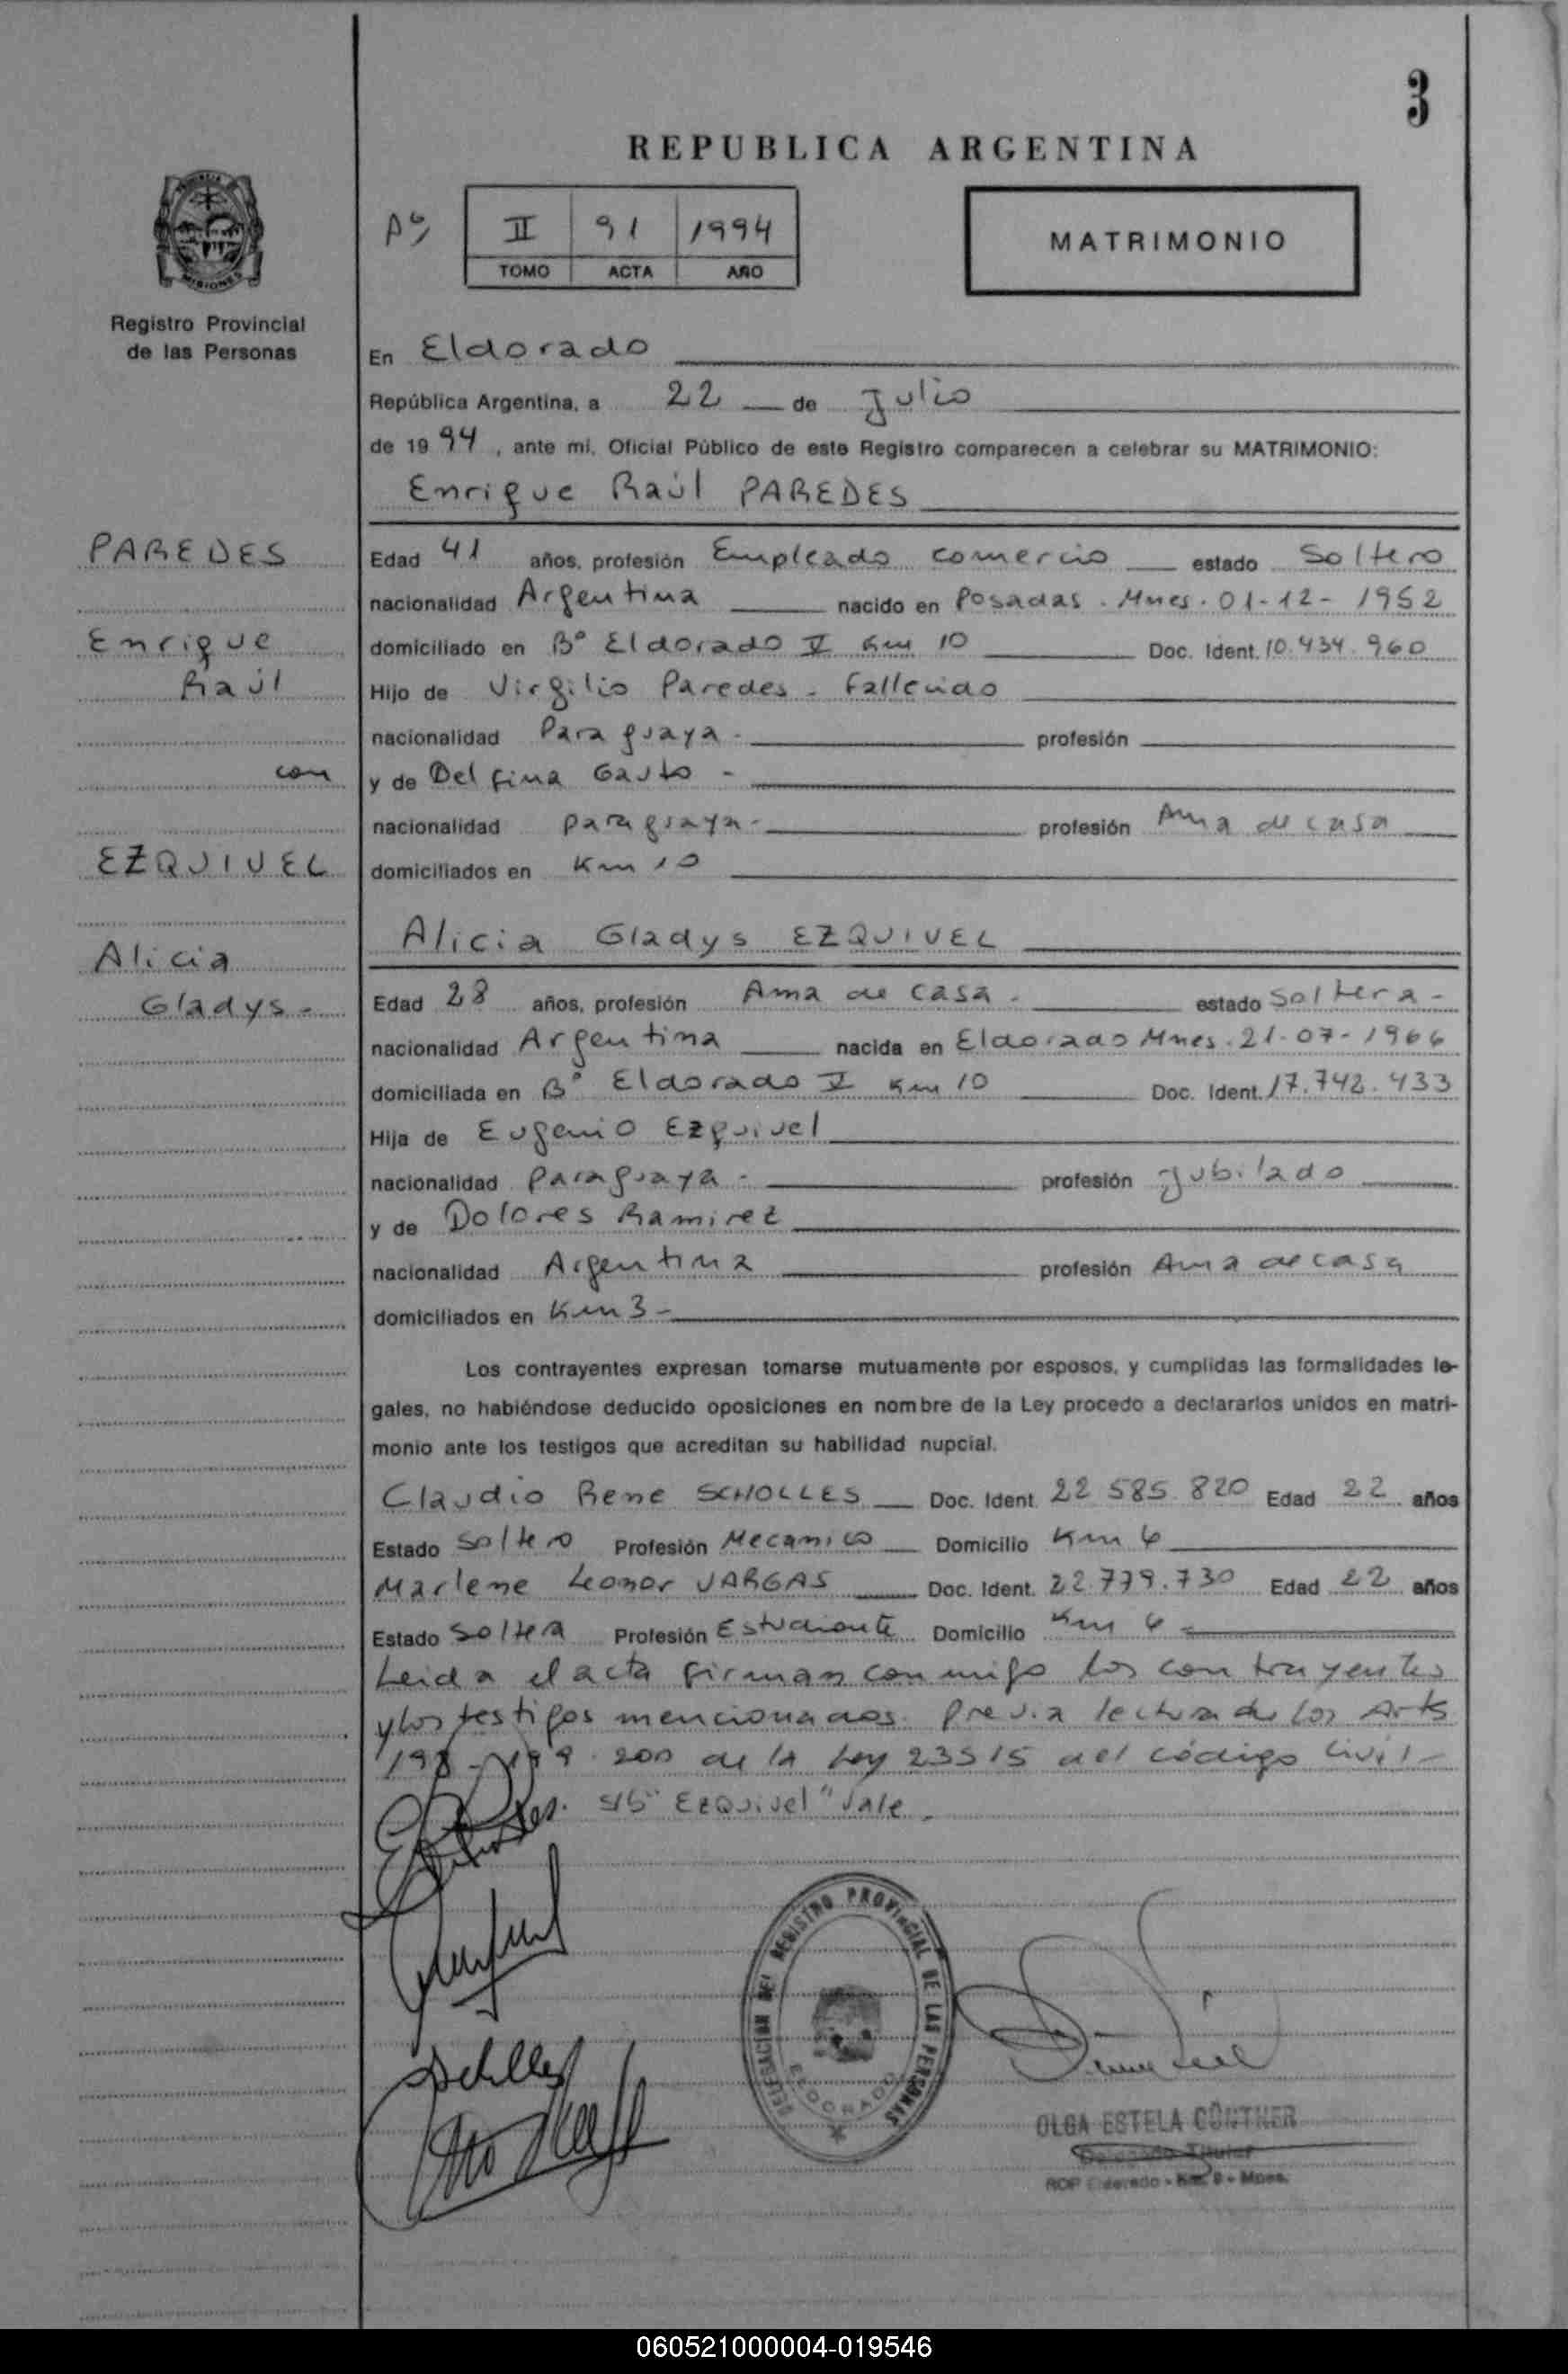 3
REPUBLICA ARGENTINA
PROVINCIA DE
MISIONES
Registro Provincial
de las Personas
II 91 1994
TOMO ACTA AÑO
MATRIMONIO
En Eldorado
República Argentina, a 22 de Julio
de 1994, ante mi, Oficial Público de este Registro comparecen a celebrar su MATRIMONIO:
Enrique Raúl PAREDES
PAREDES
Enrique
Raúl
con
EZQUIVEL
Alicia
Gladys -
Edad 41 años, profesión Empleado comercio estado Soltero
nacionalidad Argentina nacido en Posadas. Mnes. 01-12-1952
domiciliado en Bº Eldorado V Km 10 Doc. Ident. 10.434.960
Hijo de Virgilio Paredes - Fallecido
nacionalidad Paraguaya - profesión
y de Delfina Gauto -
nacionalidad paraguaya - profesión Ama de casa
domiciliados en Km 10
Alicia Gladys EZQUIVEL
Edad 28 años, profesión Ama de casa - estado Soltera -
nacionalidad Argentina nacida en Eldorado Mnes. 21-07-1966
domiciliada en Bº Eldorado V Km 10 Doc. Ident. 17.742.433
Hija de Eugenio Ezquivel
nacionalidad paraguaya - profesión Jubilado
y de Dolores Ramirez
nacionalidad Argentina profesión Ama de casa
domiciliados en Km 3 -
Los contrayentes expresan tomarse mutuamente por esposos, y cumplidas las formalidades le-
gales, no habiéndose deducido oposiciones en nombre de la Ley procedo a declararlos unidos en matri-
monio ante los testigos que acreditan su habilidad nupcial.
Claudio Rene SCHOLLES Doc. Ident. 22 585 820 Edad 22 años
Estado Soltero Profesión Mecanico Domicilio Km 6
Marlene Leonor VARGAS Doc. Ident. 22.779.730 Edad 22 años
Estado Soltera Profesión Estudiante Domicilio Km 6
Leida el acta firman conmigo los contrayentes
y los testigos mencionados. Previa lectura de los Arts
198 - 199 - 200 de la Ley 23515 del código Civil -
S/b "Ezquivel" Vale.
DELEGACION DEL REGISTRO PROVINCIAL DE LAS PERSONAS
ELDORADO
OLGA ESTELA GÜNTHER
Delegado Titular
RDP Eldorado - Km. 9 - Mnes.
060521000004-019546